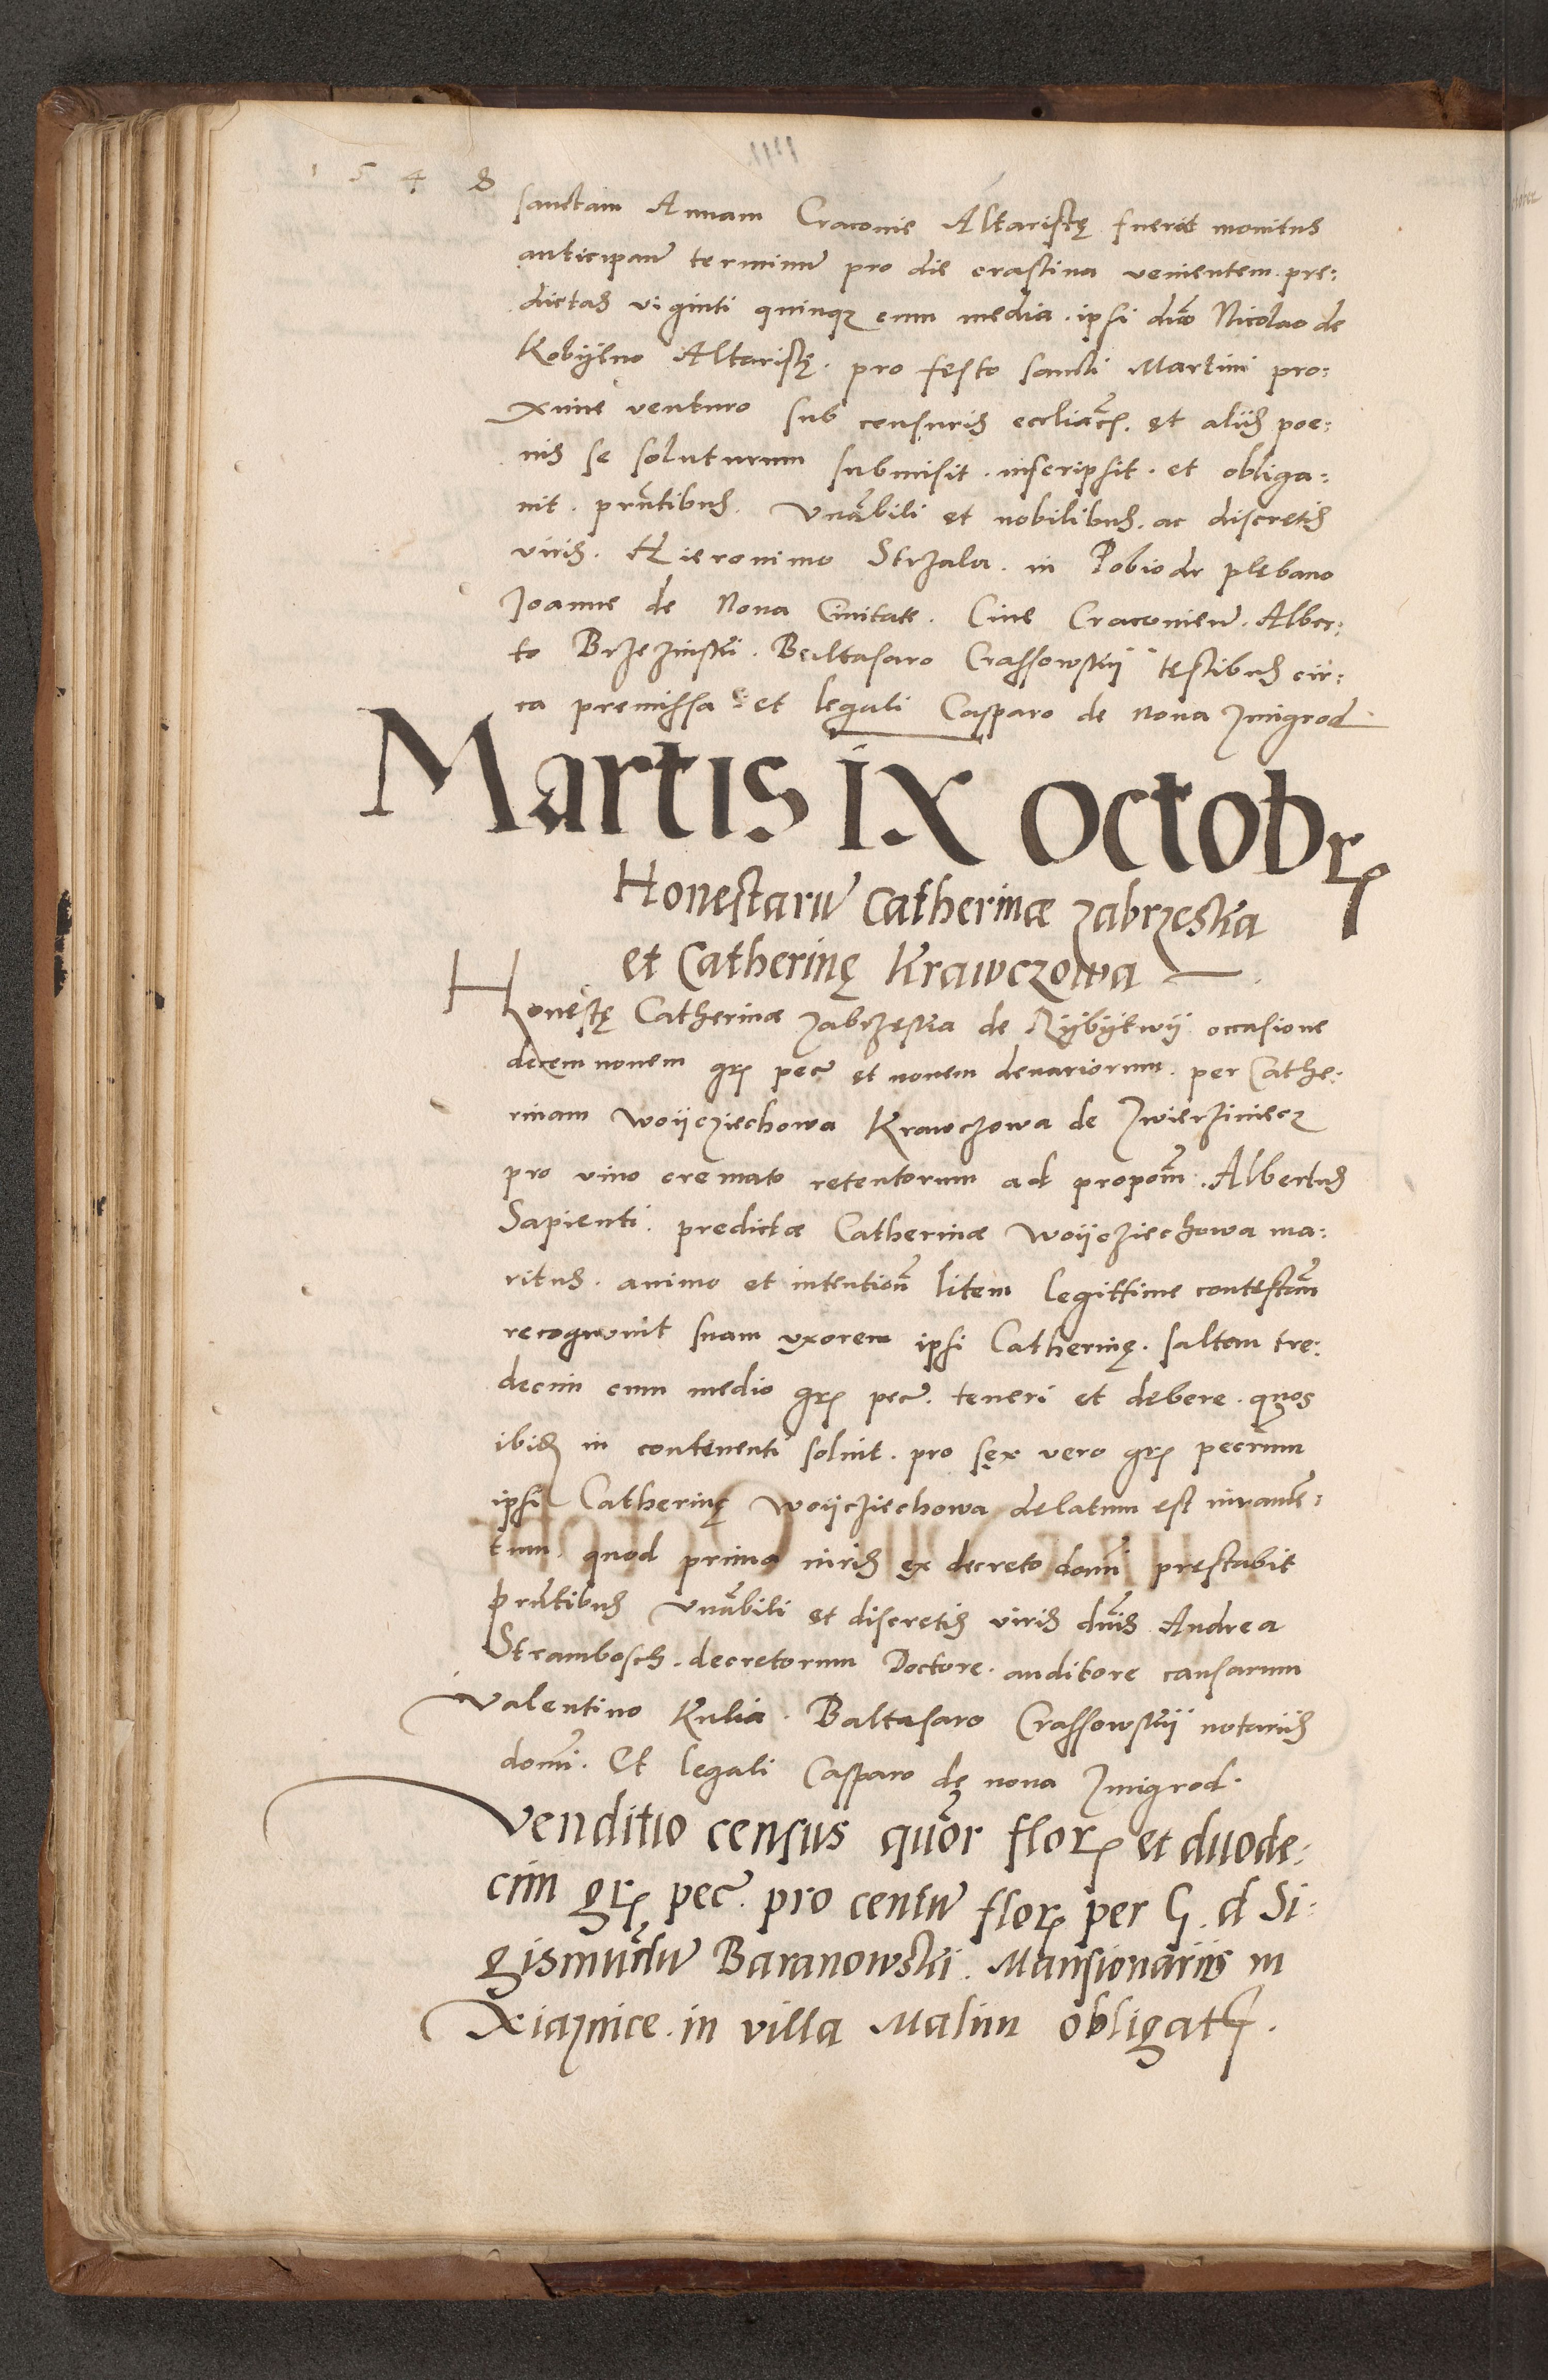 1548
sanctam Annam Craconie Altaristę fuerit monitus
anticipan̄ terminū pro die crastina venientem pre:
dictas viginti quinqz cum media. ipsi dno Nicolao de
Kobijlno Altaristę. pro festo sancti Martini pro:
xime venturo sub censuris eccliacis. et aliis poe:
nis se soluturum submisit. inscripsit. et obliga:
uit. pn̄tibus. Vn̄abili et nobilibus. ac discretis
viris. Hieronimo Strzala. in Pobiedr plebano
Joanne de Noua Ciuitate. Ciue Cracouien̄. Alber:
to Brzezinski. Baltasaro Crassowskij testibus cir:
ca premissa et legali Casparo de noua Zmigrod
Martis IX Octobr
Honestarū Catherinæ Zabrzeska
et Catherinę Krawczowa
Honestę Catherinæ Zabrzęska de Rijbijtwij occasione
decem nouem gr pec̄ et nouem denariorum. per Cathe:
rinam Woijcziechowa Krawczowa de Zwierziniecz
pro vino cremato retentorum ad propom̄. Albertus
Sapienti. predictæ Catherinæ Woijcziechowa ma:
ritus. animo et intention̄ litem legittime contestan̄
recognouit suam vxorem ipsi Catherinę. saltem tre:
decim cum medio gr pec̄. teneri et debere. quos
ibid in contenenti soluit. pro sęx vero gr pecūnum
ipsi Catherinę Woijcziechowa delatum est iuramē:
tum. quod prima iuris ex decreto domī pręstabit
prn̄tibus Vn̄abili et discretis viris dnis Andrea
Strambosch. decretorum Doctore. auditore causarum
Valentino Kulia. Baltasaro Crassowskij notariis
domī. Et legali Casparo dę noua Zmigrod.
Venditio census quōr flor et duode:
cim gr pec̄. pro centū flor per G. d Si:
gismūdū Baranowski. Mansionariis in
Xiaznice. in villa Malim obligat.